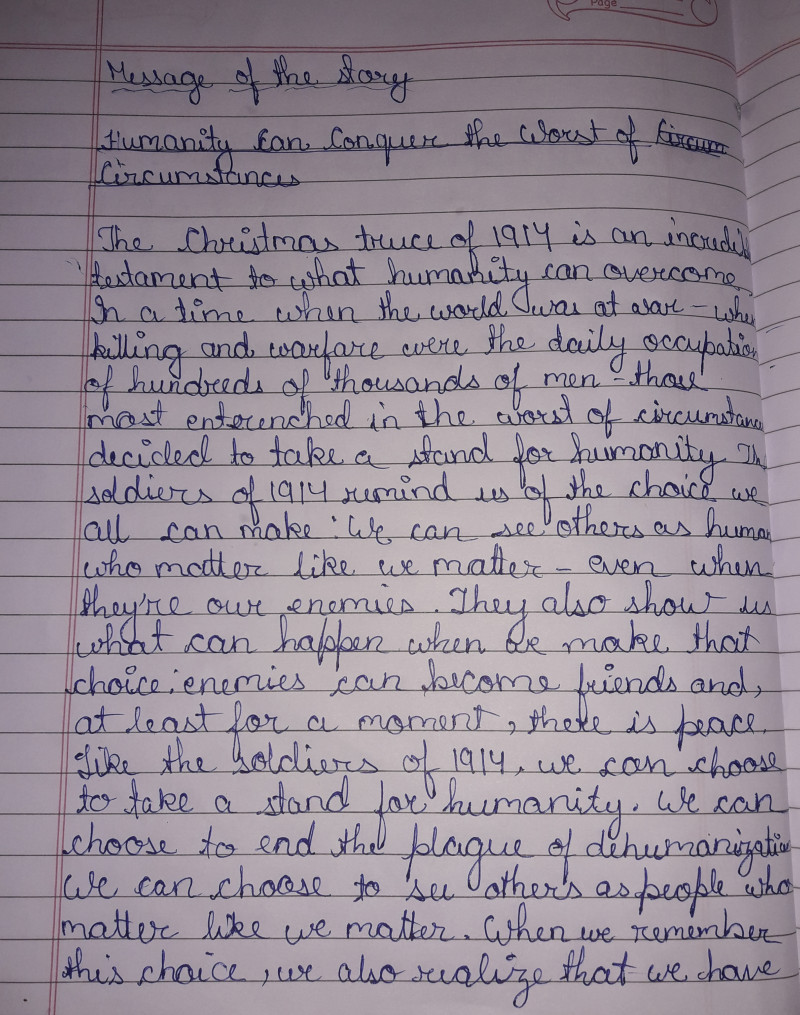 Page
Message of the Story
Humanity Can Conquer the Worst of Circum
Circumstances
The Christmas truce of 1914 is an incredib
testament to what humanity can overcome.
In a time when the world was at war – when
killing and warfare were the daily occupation
of hundreds of thousands of men – those
most enterenched in the worst of circumstance
decided to take a stand for humanity. The
soldiers of 1914 remind us of the choice we
all can make : We can see others as human
who matter like we matter – even when
they're our enemies. They also show us
what can happen when we make that
choice : enemies can become friends and,
at least for a moment, there is peace.
Like the soldiers of 1914, we can choose
to take a stand for humanity. We can
choose to end the plague of dehumanization
We can choose to see others as people who
matter like we matter. When we remember
this choice, we also realize that we have